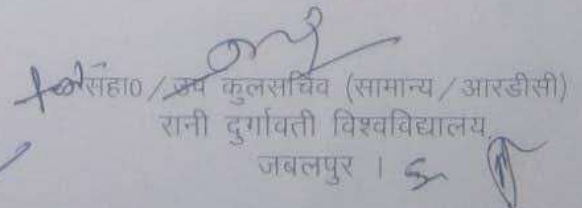 सहा0 / उप कुलसचिव (सामान्य / आरडीसी)
रानी दुर्गावती विश्वविद्यालय,
जबलपुर ।